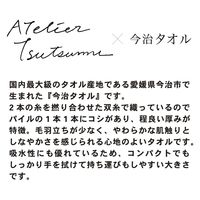 Atelier
Tsutsumu
× 今治タオル
国内最大級のタオル産地である愛媛県今治市で
生まれた『今治タオル』です。
2本の糸を撚り合わせた双糸で織っているので
パイルの1本1本にコシがあり、程良い厚みが
特徴。毛羽立ちが少なく、やわらかな肌触りと
しなやかさを感じられる心地のよいタオルです。
吸水性にも優れているため、コンパクトでも
しっかり手を拭けて持ち運びもしやすい大きさ
です。